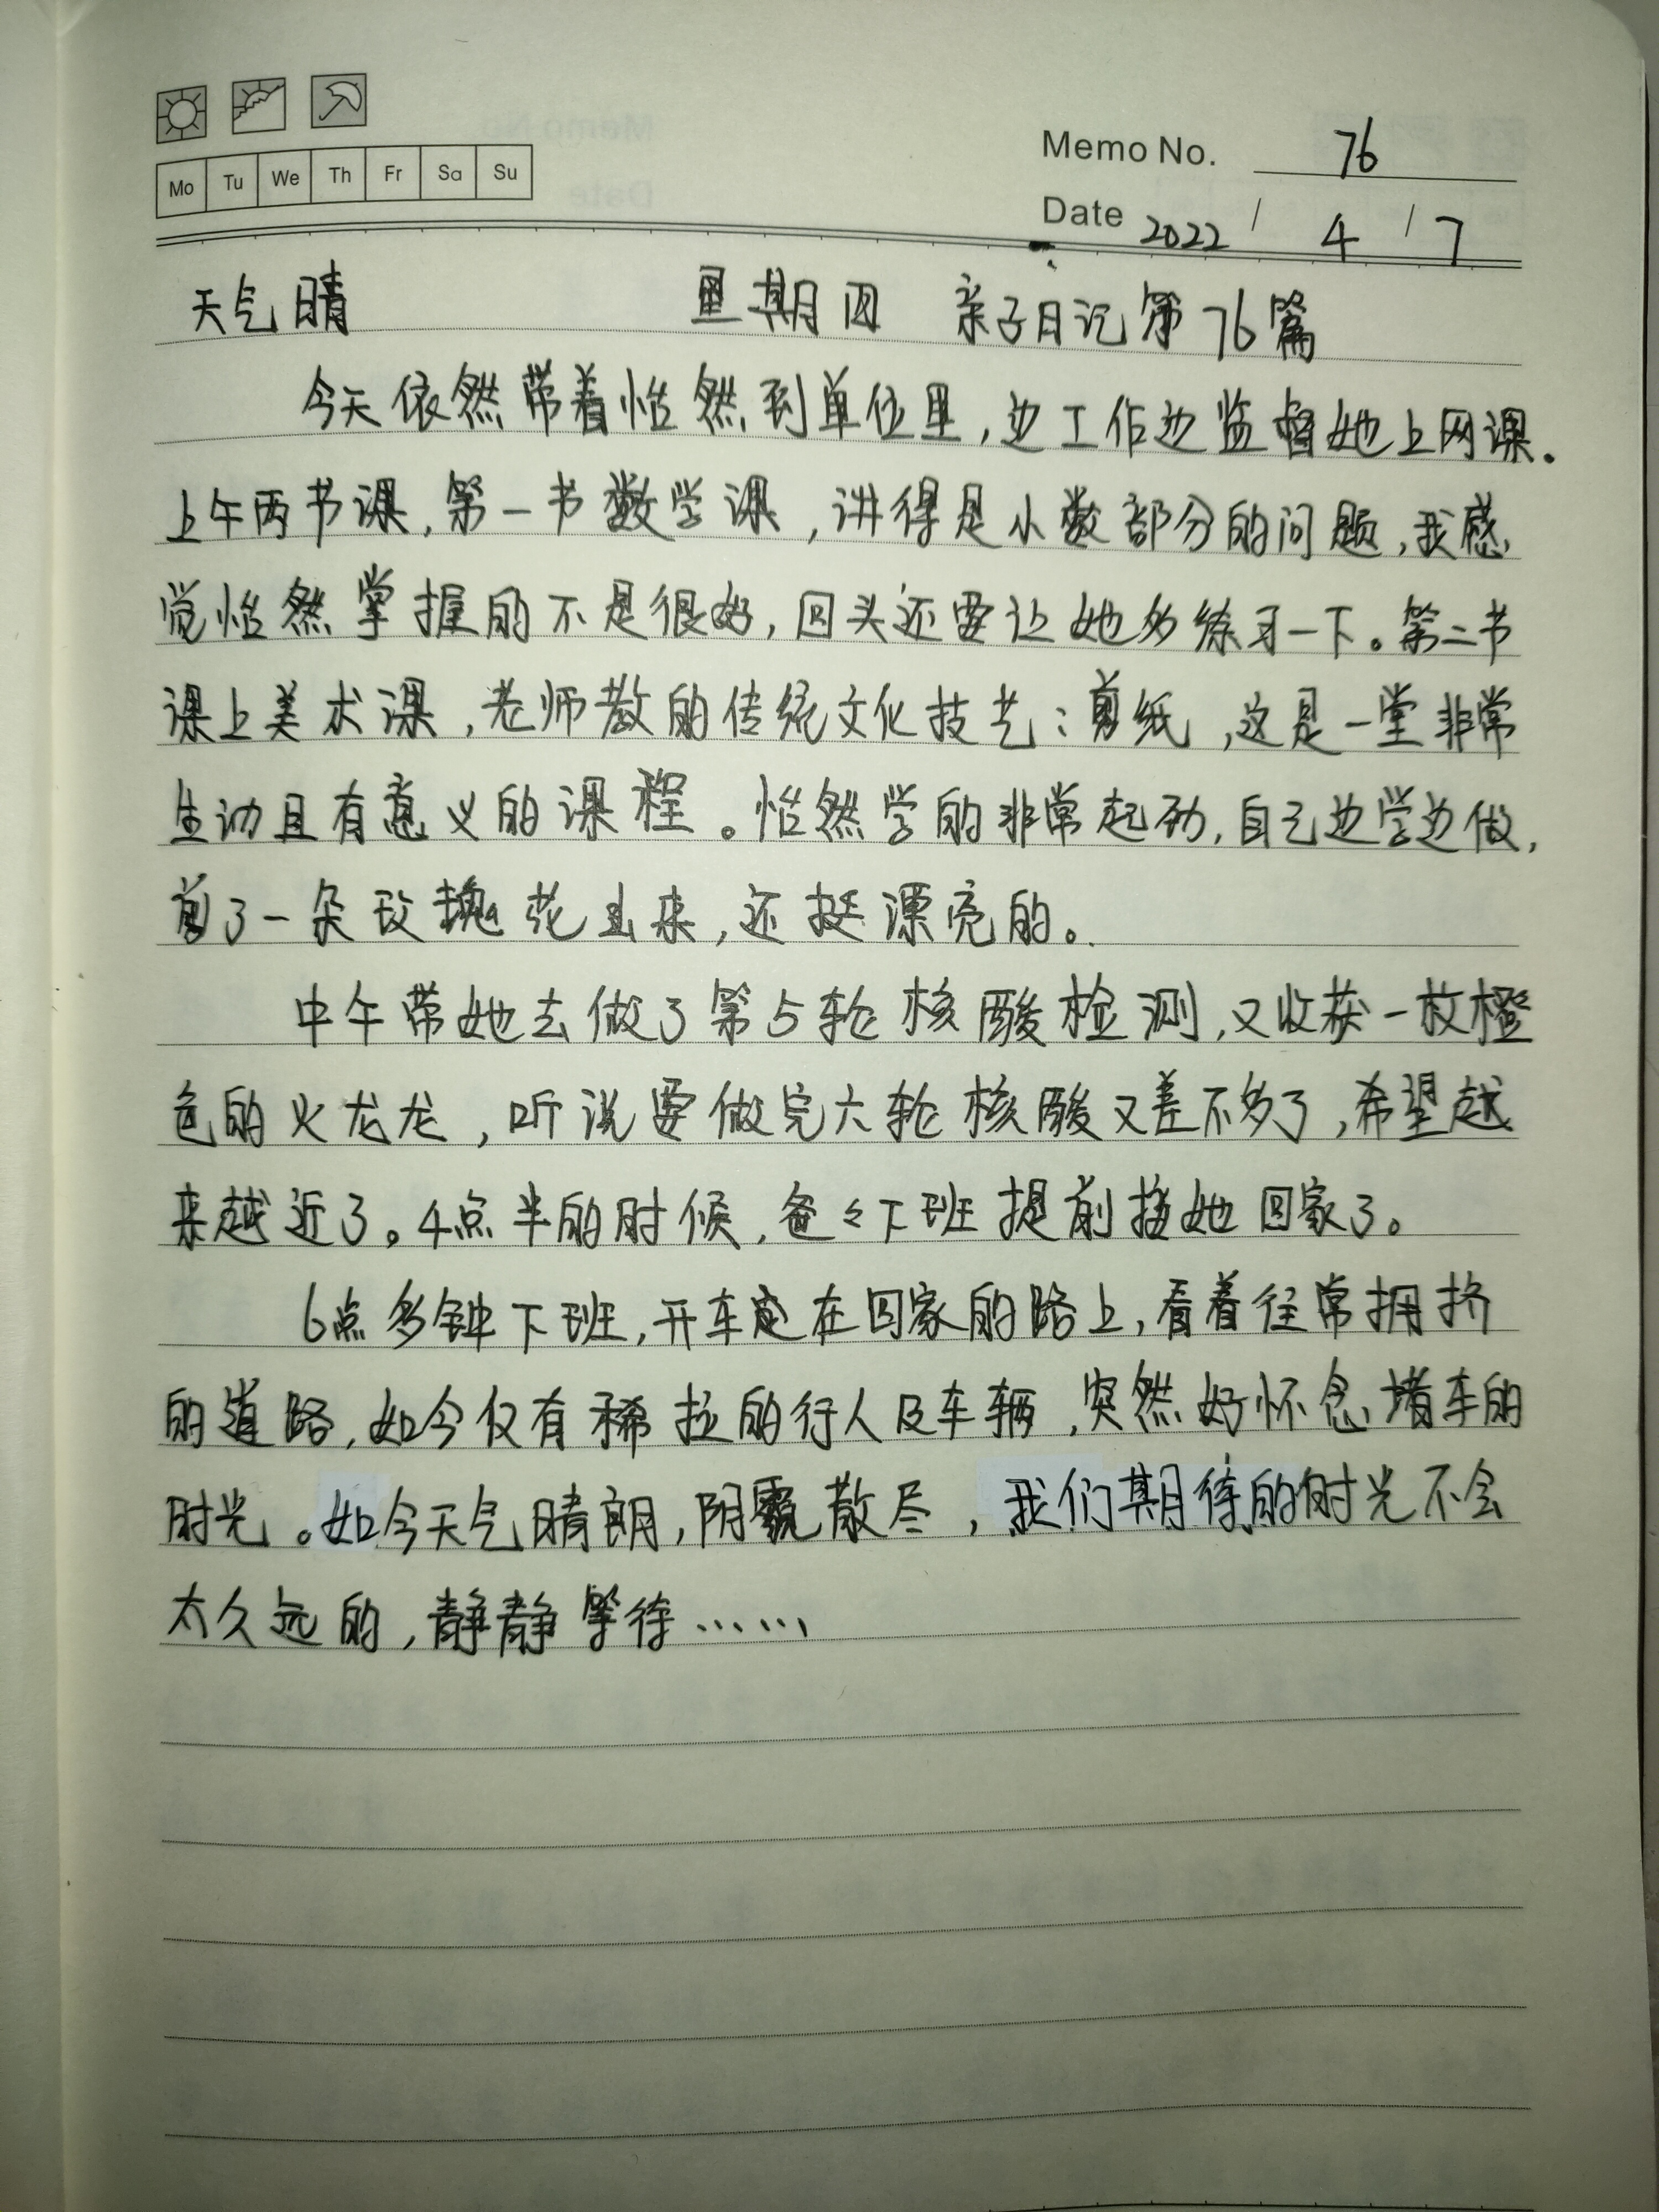 Memo No. 76
Mo Tu We Th Fr Sa Su
Date 2022 / 4 / 7
天气晴 星期四 亲子日记第76篇
今天依然带着怡然到单位里,边工作边监督她上网课.
上午两节课,第一节数学课,讲得是小数部分的问题,我感
觉怡然掌握的不是很好,回头还要让她多练习一下。第二节
课上美术课,老师教的传统文化技艺:剪纸,这是一堂非常
生动且有意义的课程。怡然学的非常起劲,自己边学边做,
剪了一朵玫瑰花出来,还挺漂亮的。
中午带她去做了第5轮核酸检测,又收获一枚橙
色的火龙龙,听说要做完六轮核酸又差不多了,希望越
来越近了。4点半的时候,爸々下班提前接她回家了。
6点多钟下班,开车走在回家的路上,看着往常拥挤
的道路,如今仅有稀拉的行人及车辆,突然好怀念堵车的
时光。如今天气晴朗,阴霾散尽,我们期待的时光不会
太久远的,静静等待……